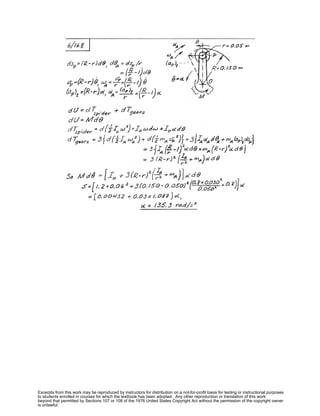 6/168
ds_P = (R-r)dθ, dθ_A = ds_P/r
= (R/r - 1)dθ
v_P = (R-r)θ̇, ω_A = v_P/r = (R/r - 1)θ̇
(a_P)_t = (R-r)α, α_A = (a_P)_t/r = (R/r - 1)α
A
r = 0.05 m
P
α_A
(a_P)_t
O
θ̈ = α
R = 0.150 m
M
dU = dT_spider + dT_gears
dU = M dθ
dT_spider = d(½ I_o ω²) = I_o ω dω = I_o α dθ
dT_gears = 3{d(½ I_A ω_A²) + d(½ m_A v_P²)} = 3{I_A α_A dθ_A + m_A (a_P)_t ds_P}
= 3{I_A (R/r - 1)² α dθ + m_A (R-r)² α dθ}
= 3(R-r)² (I_A/r² + m_A) α dθ
So M dθ = [I_o + 3(R-r)² (I_A/r² + m_A)] α dθ
5 = [1.2×0.06² + 3(0.150 - 0.050)² (0.8×0.030²/0.050² + 0.8)] α
= [0.00432 + 0.03×1.088] α
α = 135.3 rad/s²
Excerpts from this work may be reproduced by instructors for distribution on a not-for-profit basis for testing or instructional purposes
to students enrolled in courses for which the textbook has been adopted. Any other reproduction or translation of this work
beyond that permitted by Sections 107 or 108 of the 1976 United States Copyright Act without the permission of the copyright owner
is unlawful.